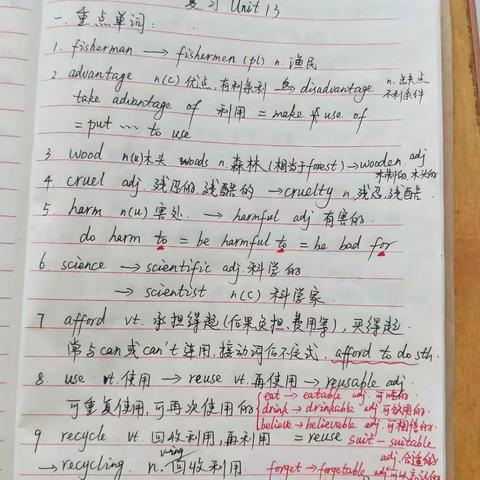 复习 Unit 13
一. 重点单词:
1. fisherman → fishermen (pl) n. 渔民
2 advantage n(c) 优点, 有利条件 disadvantage n. 不利条件
take advantage of 利用 = make use of
= put … to use
3 wood n(u)木头 woods n.森林(相当于forest) → wooden adj 木制的
4 cruel adj 残忍的,残酷的 → cruelty n.残忍,残酷
5 harm n(u) 害处. → harmful adj 有害的.
do harm to = be harmful to = be bad for
6. science → scientific adj.科学的
→ scientist n(c) 科学家.
7. afford vt. 承担得起(后果,负担,费用等), 买得起.
常与can或can't 连用,接动词后不定式. afford to do sth.
8. use vt.使用 → reuse vt.再使用 → reusable adj.
可重复使用,可再次使用的
eat → eatable adj.可吃的
drink → drinkable adj.可饮用的
believe → believable adj.可相信的
9 recycle vt. 回收利用,再利用 = reuse suit - suitable adj.合适的
→ recycling. n. 回收利用. forget → forgetable adj